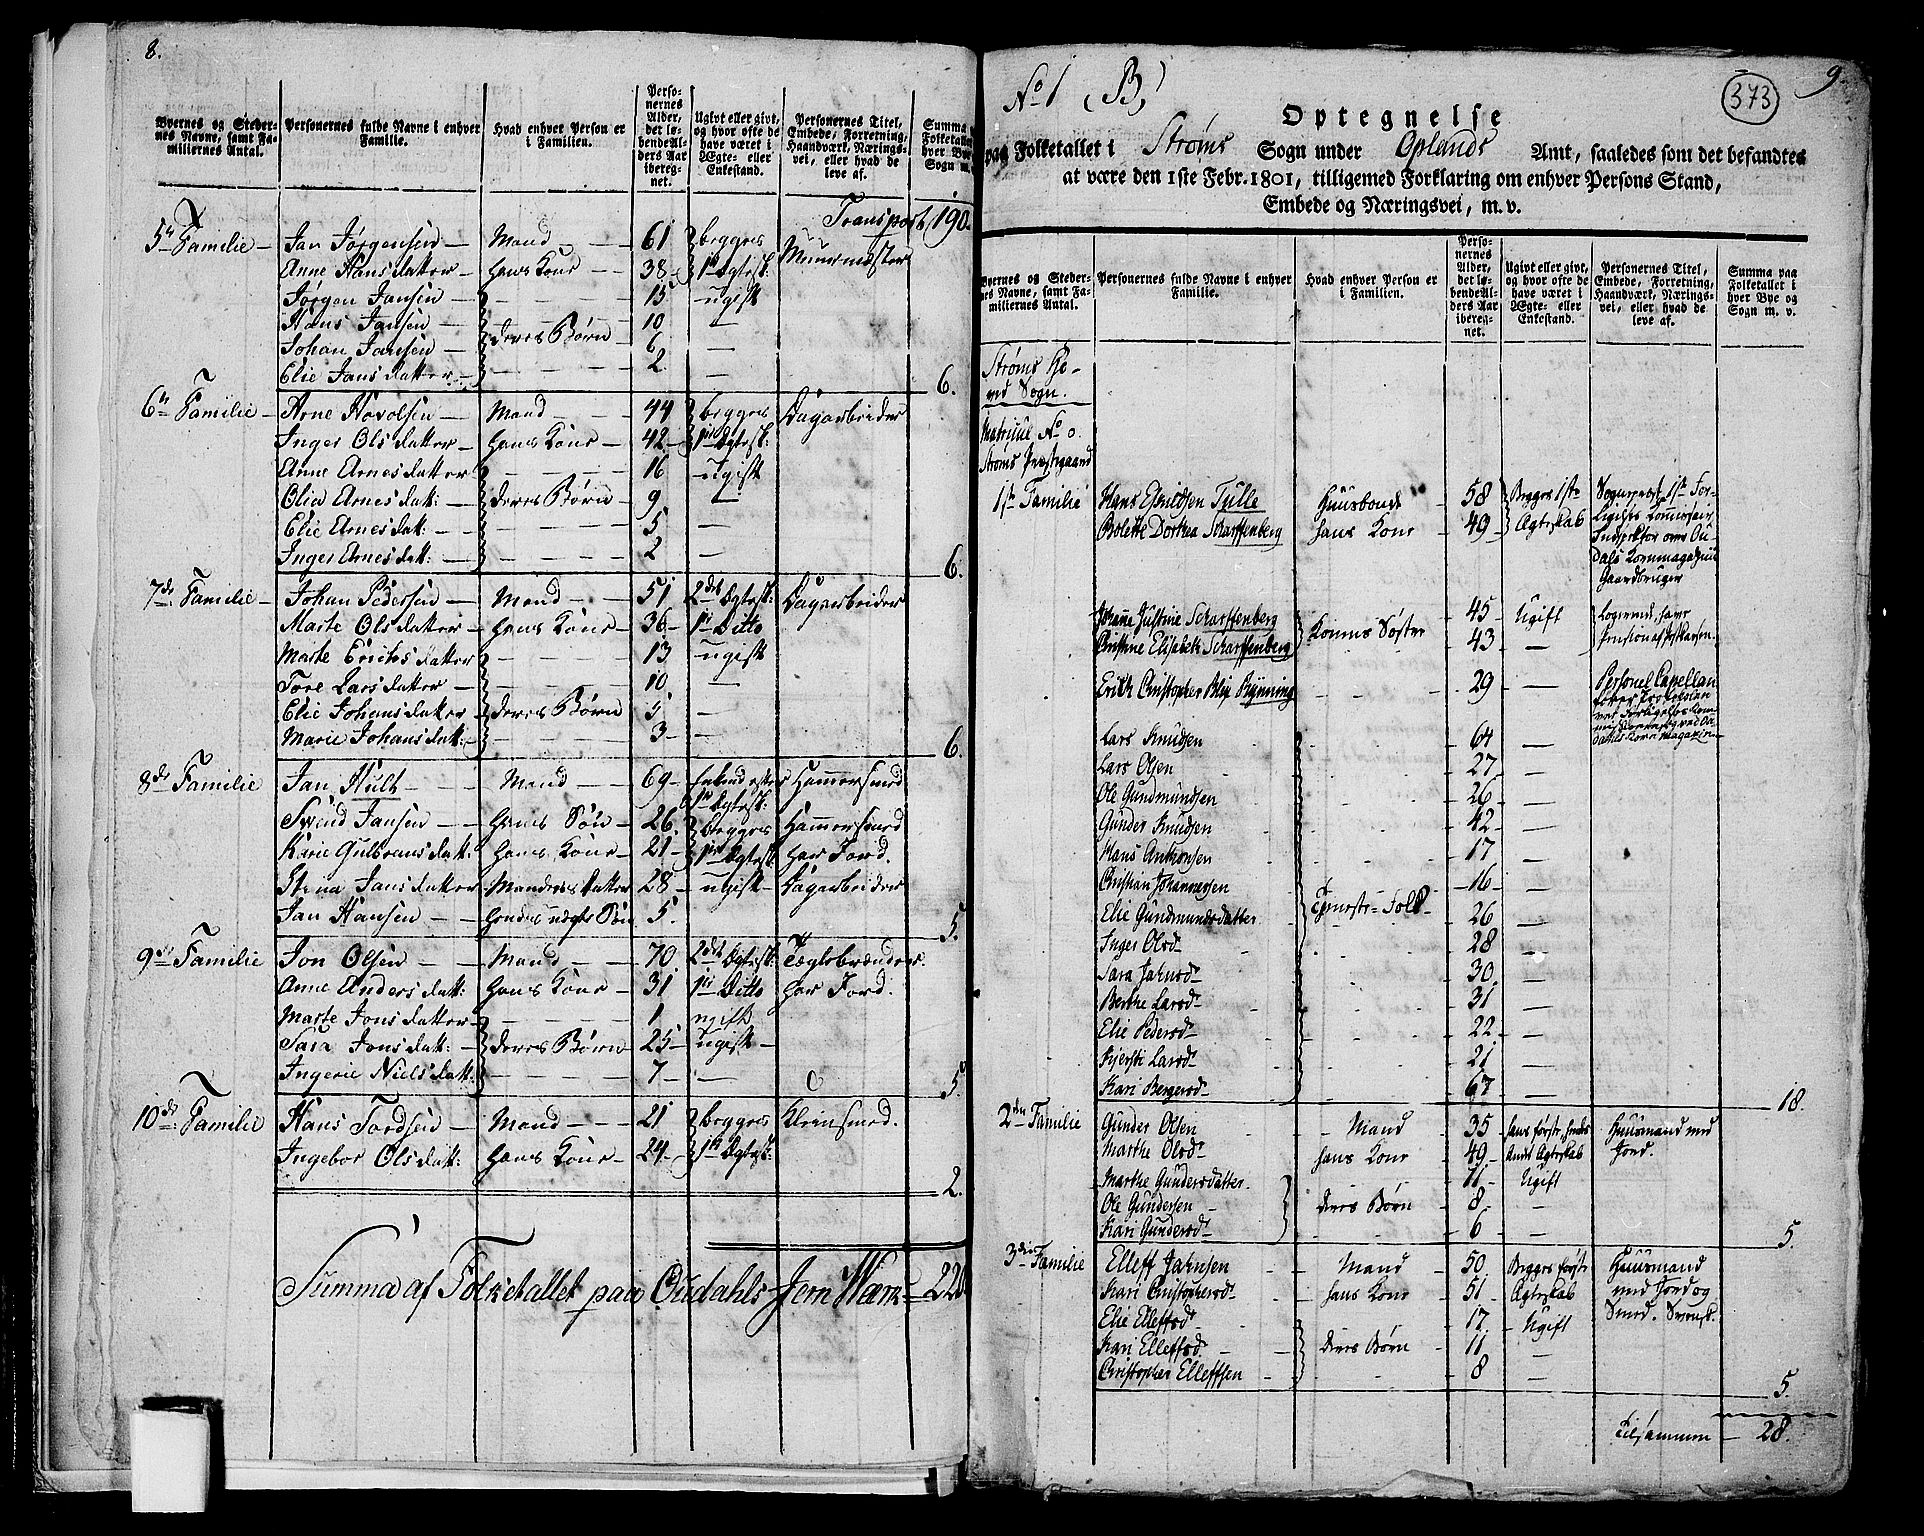 8.
Byernes og Steder-
nes Navne, samt Fa-
miliernes Antal.
Personernes fulde Navne i enhver
Familie.
Hvad enhver Person er
i Familien.
Perso-
nernes
Alder,
det lø-
bende Al-
ders Aar
ibereg-
net.
Ugivt eller givt,
og hvor ofte de
have været i
Ægte- eller
Enkestand.
Personernes Titel,
Embede, Forretning,
Haandværk, Nærings-
vei, eller hvad de
leve af.
Summa
Folketallet
hver Bye
Sogn m.
Transport 190.
5te Familie — Jan Jørgensen — Mand — 61 begges Muurmester
Anne Hansdatter — hans Kone — 38 1ste Ægtesk:
Jørgen Jansen — 15 ugift
Hans Jansen — 10 —
Johan Jansen — deres Børn 6 —
Elie Jansdatter 2 —
6.
6te Familie — Arne Havolsen — Mand — 44 begges Dagarbeider
Inger Olsdatter — hans Kone — 42 1ste Ægtesk:
Anne Arnesdatter 16 ugift
Olia Arnesdatt: deres Børn 9 —
Elie Arnesdatt: 5 —
Inger Arnesdatt: 2 —
6.
7de Familie — Johan Pedersen — Mand — 51 2det Ægtesk: Dagarbeider
Marte Olsdatter — hans Kone — 36 1ste Ditto
Marte Erichsdatter 13 ugift
Tore Larsdatter — 10 —
Elie Johansdatter deres Børn 5 —
Marie Johansdatt: 3 —
6.
8de Familie Jan Hult — Mand — 69 Enkemd efter Hammersmed
1ste Ægtesk:
Svend Jansen — hans Søn — 26 begges Hammersmed
Karie Gulbransdatt: hans Kone — 21 1ste Ægtesk: har Jord.
Stina Jansdatter Mandens datter 28 ugift — Dagarbeider
Jan Hansen — hendes uægte Søn 5.
5.
9de Familie Jon Olsen — Mand — 70 2det Ægtesk: Teglebrænder
Anne Andersdatt: hans Kone — 31 1ste Ditto har Jord.
Marte Jonsdatter — 1 ugift
Sara Jonsdatt: — deres Børn 25 ugift —
Ingerie Nielsdatt: 7 —
5.
10de Familie Hans Tordsen — Mand — 21 begges Kleinsmed.
Ingebor Olsdatt: hans Kone — 24 1ste Ægtesk:
2.
Summa af Folketallet paa Oudahls Jern Værk = 220
No 1 (B)
373
9.
Optegnelse
paa Folketallet i Strøms Sogn under Oplands Amt, saaledes som det befandtes
at være den 1ste Febr. 1801, tilligemed Forklaring om enhver Persons Stand,
Embede og Næringsvei, m. v.
Byernes og Steder-
nes Navne, samt Fa-
miliernes Antal.
Personernes fulde Navne i enhver
Familie.
Hvad enhver Person er
i Familien.
Perso-
nernes
Alder,
det lø-
bende Al-
ders Aar
ibereg-
net.
Ugivt eller givt,
og hvor ofte de
have været i
Ægte- eller
Enkestand.
Personernes Titel,
Embede, Forretning,
Haandværk, Nærings-
vei, eller hvad de
leve af.
Summa paa
Folketallet i
hver Bye og
Sogn m. v.
Strøms Ho-
ved Sogn.
Matricul No 0.
Strøms Præstegaard
1ste Familie Hans Esnidsen Tulle Huusbonde 58 Begges 1ste Sogneprest, 1ste For-
Bolette Dorthea Scharffenberg hans Kone 49 Ægteskab ligelses Kommissair
Indspektør over Ou-
dals Kornmagasin
Gaardbruger
Johanne Justine Scharffenberg 45 Ugift Logerende, haver
Christine Elisabeth Scharffenberg Konens Søstre 43 — Pension af Postkassen.
Erich Christopher Blix Rynning 29 — Personel Capellan
Lars Knudsen 64 —
Lars Olsen 27 —
Ole Gundmundsen 26 —
Gunder Knudsen 42 —
Hans Anthonsen 17 —
Christian Johannesen 16 —
Elie Gundmundsdatter Tieneste-Folk 26 —
Inger Olsd 28 —
Sara Jahnsd 30 —
Berthe Larsd 31 —
Elie Pedersd 22 —
Kjersti Larsd 21 —
Kari Bergersd 67 —
18.
2den Familie Gunder Olsen Mand 35 hans første, hendes Huusmand med
Marthe Olsd hans Kone 49 andet Ægteskab Jord.
Marthe Gundersdatter 11 Ugift
Ole Gundersen deres Børn 8 —
Kari Gundersd 6 —
5.
3die Familie Elleff Jahnsen Mand 50 Begges første Huusmand
Kari Christophersd hans Kone 51 Ægteskab med Jord og
Elie Elleffsd 17 Ugift Smed. Svensk.
Kari Elleffsd. deres Børn 11 —
Christopher Elleffsen 8 —
5.
Tilsammen — 28.